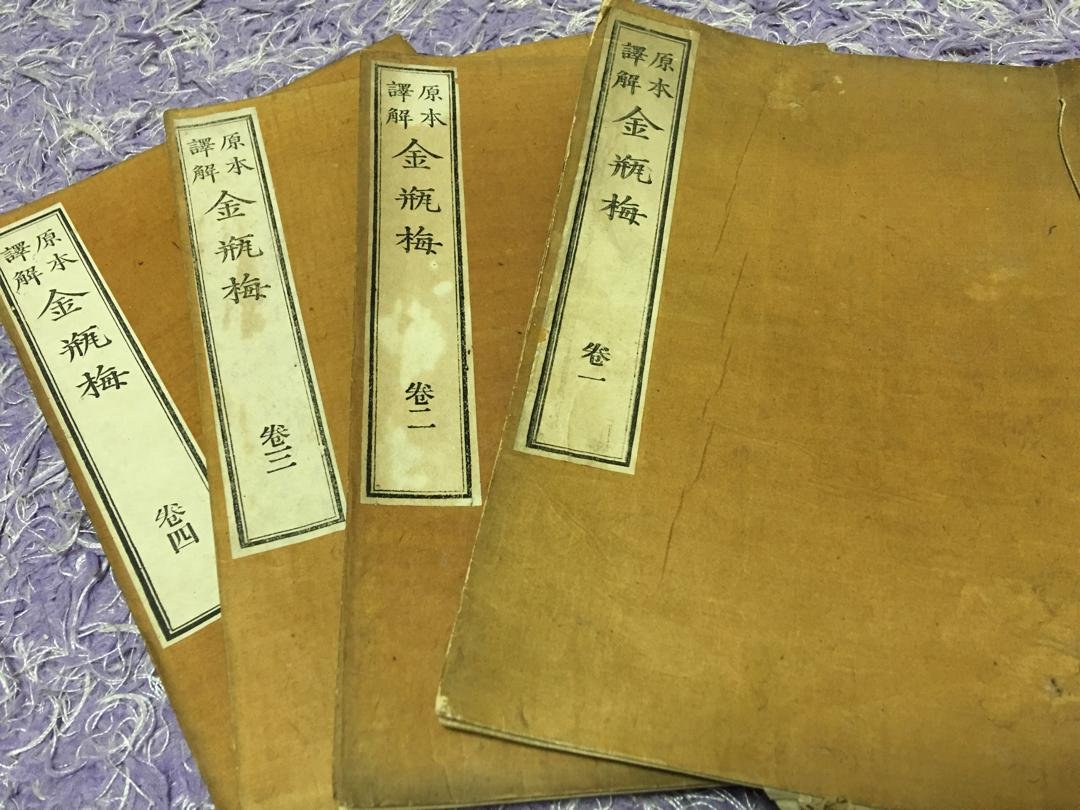 原本
譯解
金瓶梅
卷一
原本
譯解
金瓶梅
卷二
原本
譯解
金瓶梅
卷三
原本
譯解
金瓶梅
卷四